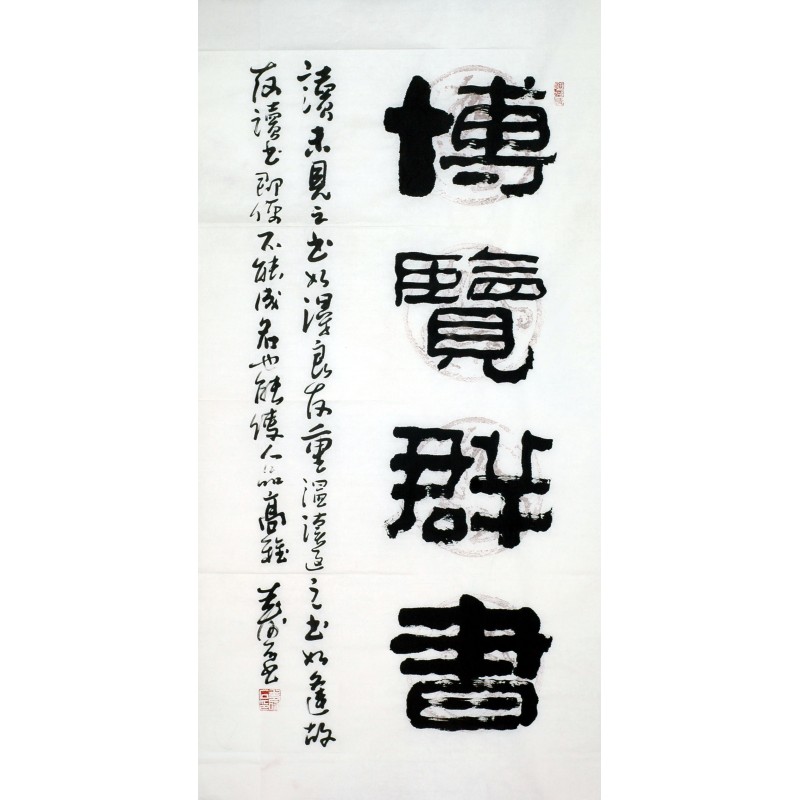 博覽群書
讀未見之書如得良友重溫讀過之書如逢故
友讀書即使不能成名也能使人品高雅